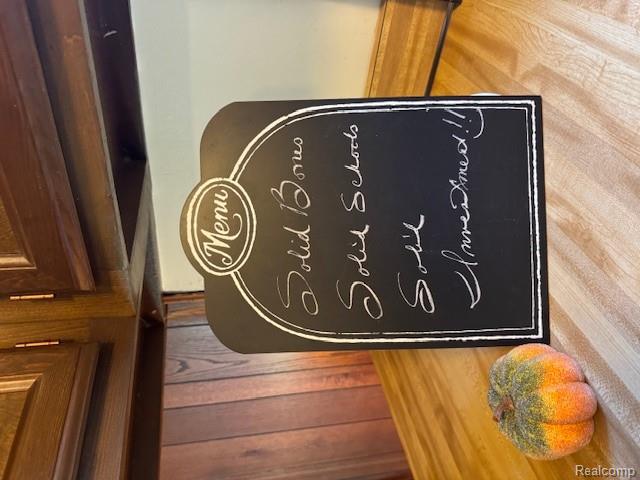 Menu
Solid Bones
Solid Schools
Solid
Investment!!
Realcomp